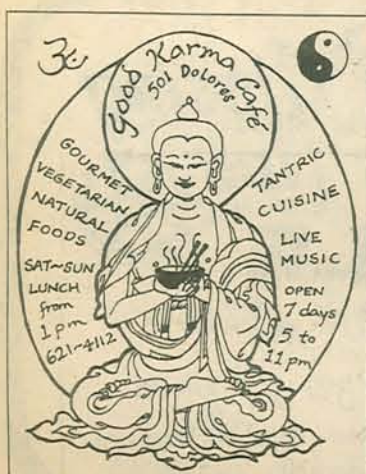 ॐ
Good Karma Café
501 Dolores
GOURMET
VEGETARIAN
NATURAL
FOODS
SAT~SUN
LUNCH
from
1 pm
621~4112
TANTRIC
CUISINE
LIVE
MUSIC
OPEN
7 days
5 to
11 pm